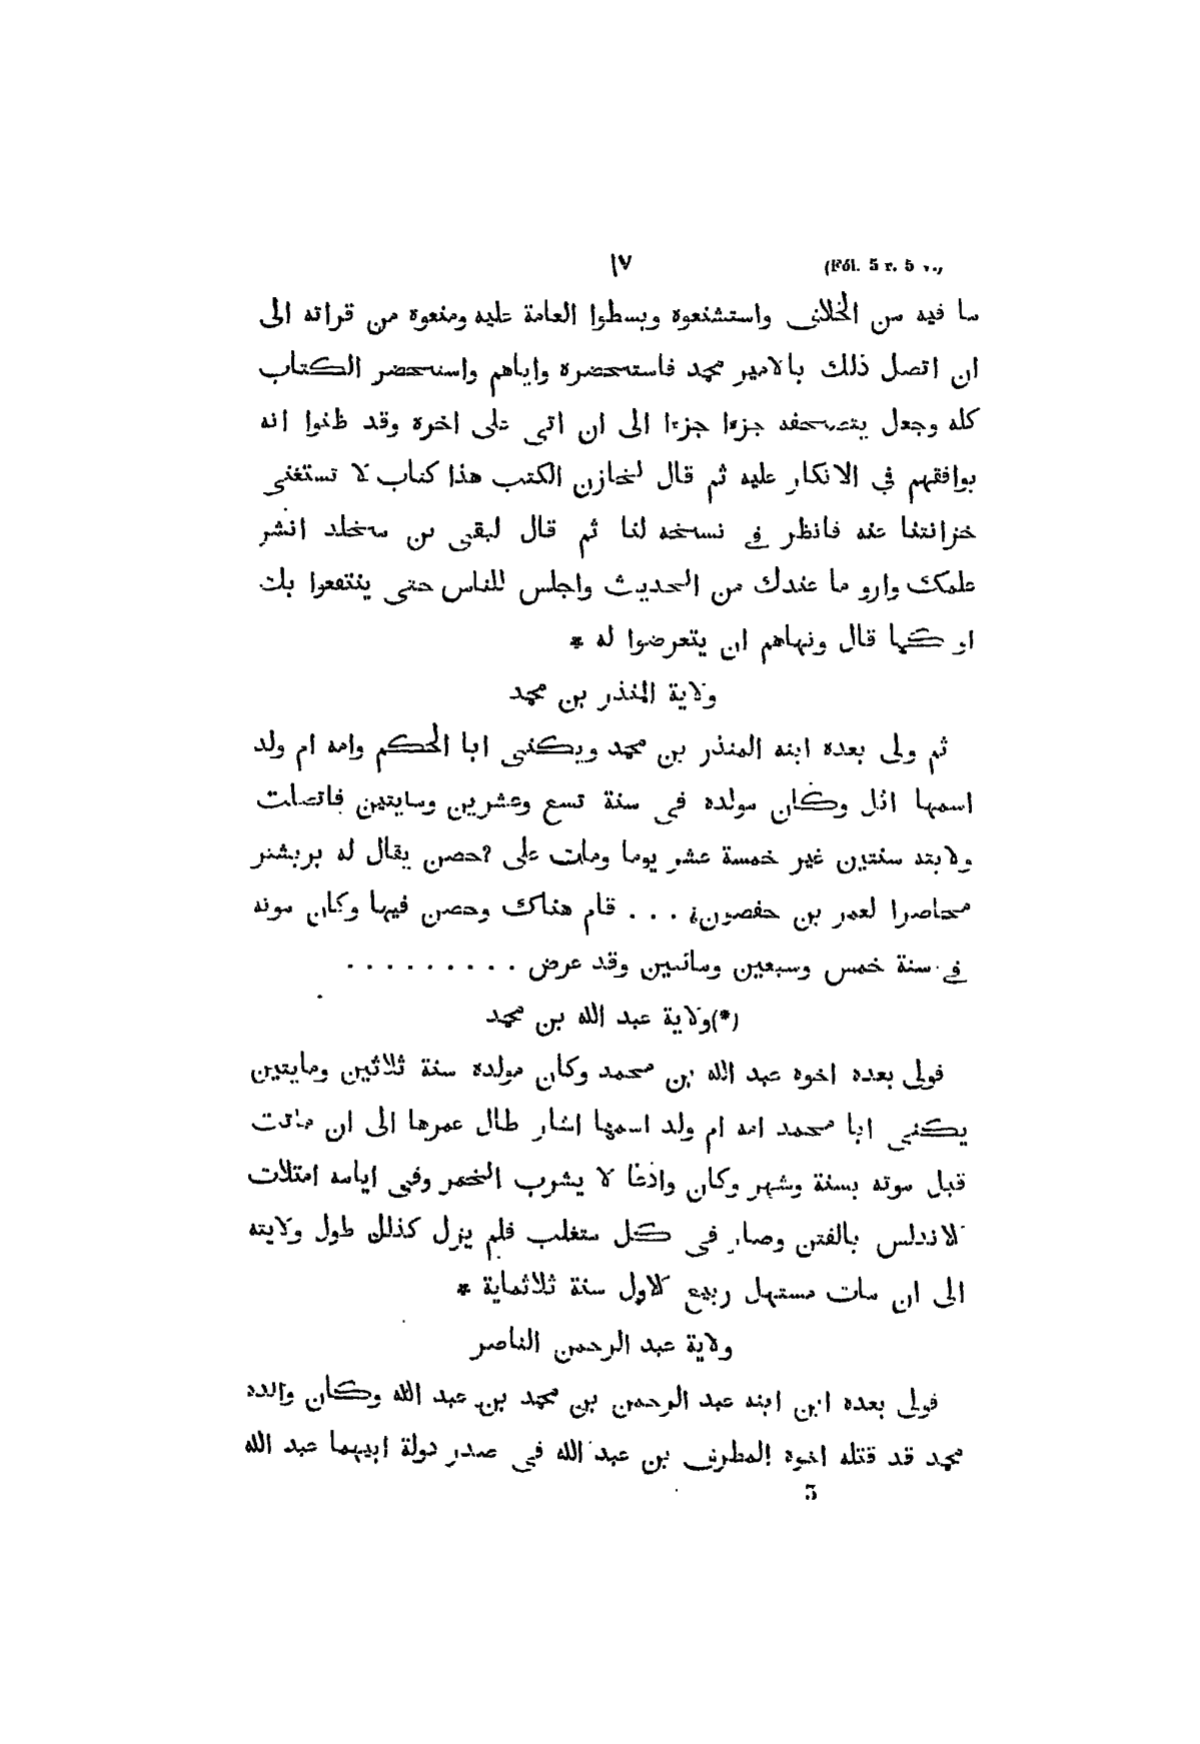 (Fól. 5 r. 5 v.) ١٧
ما فيه من الخلاف واستشنعوه وبسطوا العامة عليه ومنعوه من قراته الى
ان اتصل ذلك بالامير محمد فاستحضره واياهم واستحضر الكتاب
كله وجعل يتصحفه جزءا جزءا الى ان اتى على اخره وقد ظنوا انه
يوافقهم في الانكار عليه ثم قال لخازن الكتب هذا كتاب لا تستغنى
خزانتنا عنه فانظر في نسخه لنا ثم قال لبقى بن مخلد انشر
علمك وارو ما عندك من الحديث واجلس للناس حتى ينتفعوا بك
او كما قال ونهاهم ان يتعرضوا له *
ولاية المنذر بن محمد
ثم ولى بعده ابنه المنذر بن محمد ويكنى ابا الحكم وامه ام ولد
اسمها اثل وكان مولده فى سنة تسع وعشرين ومايتين فاتصلت
ولايته سنتين غير خمسة عشر يوما ومات على ?حصن يقال له بربشتر
محاصرا لعمر بن حفصون؟ . . . قام هناك وحصن فيها وكان موته
في سنة خمس وسبعين ومائتين وقد عرض . . . . . . . . .
(*)ولاية عبد الله بن محمد
فولى بعده اخوه عبد الله بن محمد وكان مولده سنة ثلاثين ومايتين
يكنى ابا محمد امه ام ولد اسمها اشار طال عمرها الى ان ماتت
قبل موته بسنة وشهر وكان وادعا لا يشرب الخمر وفى ايامه امتلات
الاندلس بالفتن وصار فى كل متغلب فلم يزل كذلك طول ولايته
الى ان مات مستهل ربيع الاول سنة ثلاثماية *
ولاية عبد الرحمن الناصر
فولى بعده ابن ابنه عبد الرحمن بن محمد بن عبد الله وكان والده
محمد قد قتله اخوه المطرف بن عبد الله فى صدر دولة ابيهما عبد الله
3